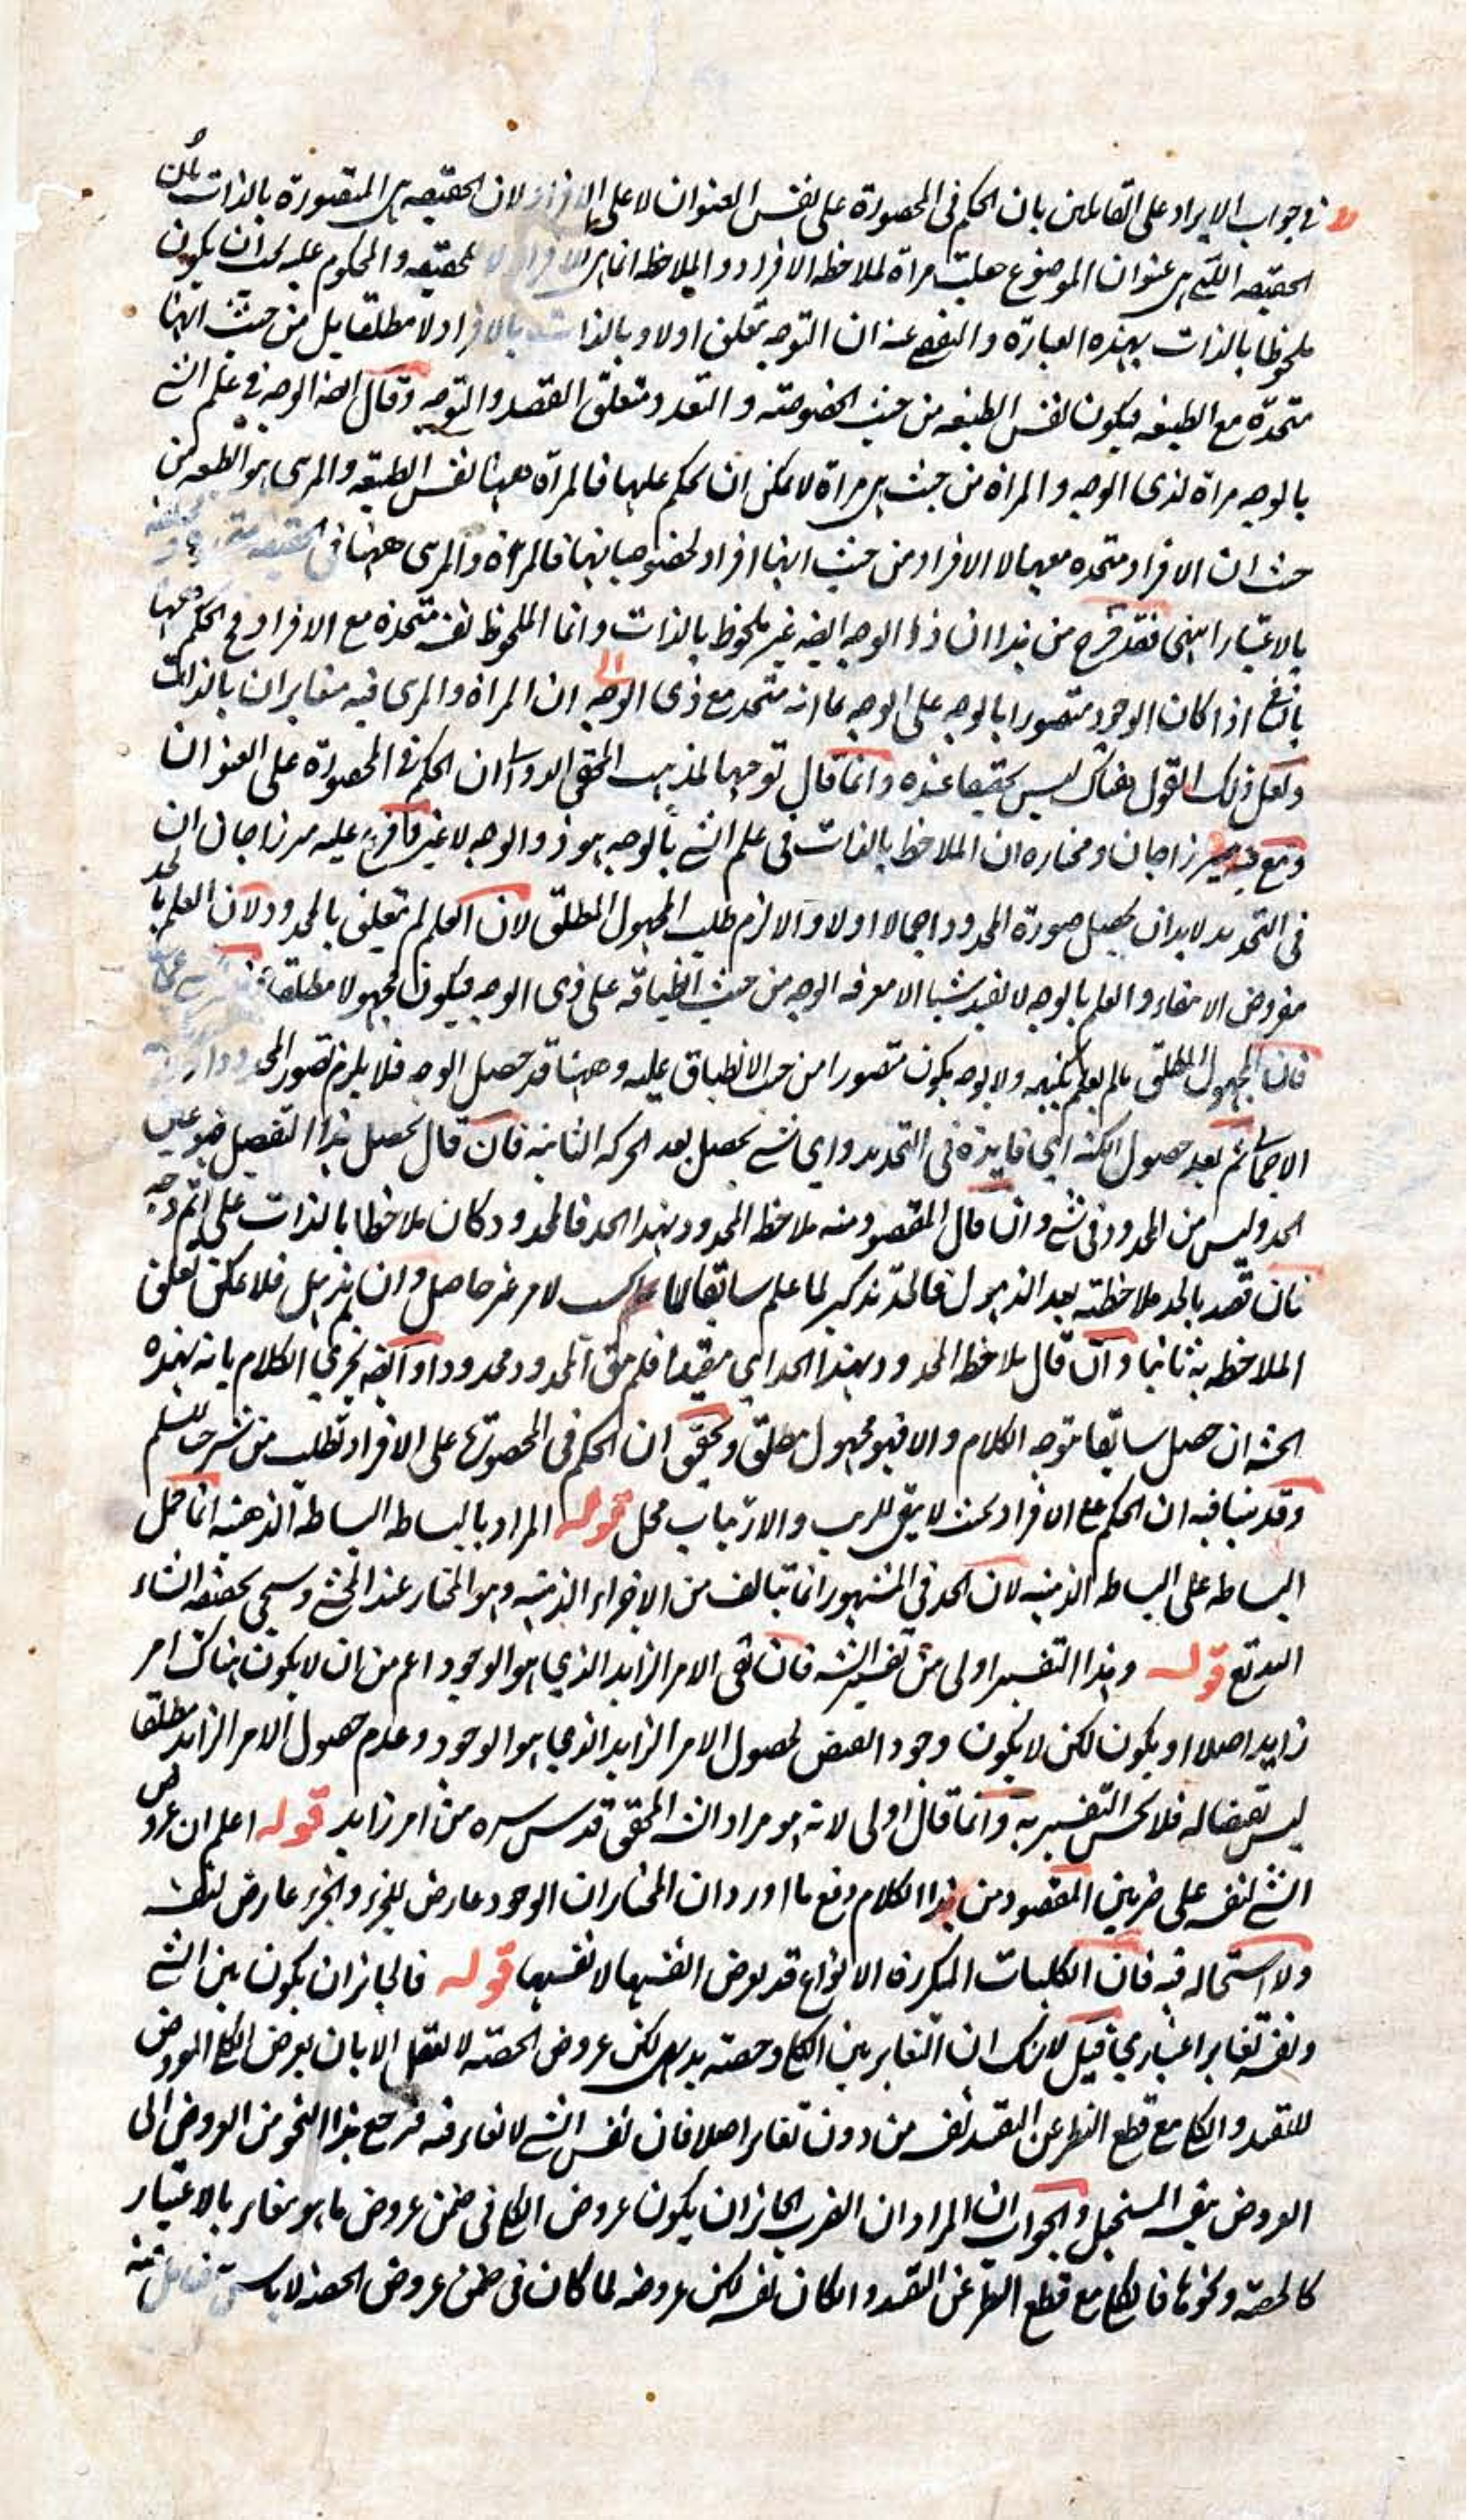 في جواب الايراد على القائلين بان الحكم في المحصورة على نفس العنوان لا على الافراد لان الحقيقه هي المتصورة بالذات بان
الحقيقه اللتي هي عنوان الموضوع جعلت مراة لملاحظه الافراد والملاحظ انما هي الافراد لا الحقيقه والمحكوم عليه يجب ان يكون
ملحوظا بالذات بهذه العبارة والتفصي عنه ان التوجه تعلق اولا وبالذات بالافراد لا مطلقا بل من حيث انها
متحدة مع الطبيعه فيكون نفس الطبيعه من حيث الخصوصيه و التعدد متعلق القصد والتوجه وقال ايضا الوجه في علم الشي
بالوجه مراة لذى الوجه والمراة من حيث هي مراة لا يمكن ان يحكم عليها فالمراة ههنا نفس الطبيعه والمرئي هو الطبيعه من
حيث ان الافراد متحده معها لا الافراد من حيث انها افراد لخصوصياتها فالمراة والمرئي ههنا في الحقيقه
بالاعتبار انتهى فقد صرح من هذا ان ذا الوجه ايضه غير ملحوظ بالذات وانما الملحوظ نفسه متحدة مع الافراد و الحكم ههنا
اذا كان الوجود متصورا بالوجه على الوجه بما انه متحد مع ذى الوجه ان المراة والمرئي فيه متغايران بالذات
ولعل ذلك القول هناك ليس تحقيقا عنده وانما قال توجيها لمذهب المحقق الدواني ان الحكم في المحصورة على العنوان
ميرزاجان ومختاره ان الملاحظ بالذات في علم الشي بالوجه هو ذو الوجه لا غير عليه مرزا جان ان
في التحديد لابد ان يحصل صورة المحدود اجمالا اولا والا لزم طلب المجهول المطلق لان العلم لم يتعلق بالمحدود لان العلم بالحد
مفروض الانتفاء والعلم بالوجه لا يفيد شيا الا معرفه الوجه من حيث انطباقه على ذى الوجه فيكون مجهولا مطلقا
فان المجهول المطلق ما لم يعلم بكنهه ولا بوجه يكون متصورا من حيث الانطباق عليه وههنا قد حصل الوجه فلا يلزم تصور المحدود
ثم بعد حصول الكنه اي فايدة في التحديد واي شي يحصل بعد الحركه الثانيه فان قال يحصل هذا التفصيل فهو عين
الحد وليس من المحدود في شي وان قال المقصود منه ملاحظ المحدود بهذا الحد فالمحدود كان ملاحظا بالذات على اتم وجه
فان قصد بالحد ملاحظته بعد الذهول فالحد تذكير لما علم سابقا لا كاسب لامر غير حاصل وان لم يذهل فلا يمكن تعلق
الملاحظه به ثانيا وان قال يلاحظ المحدود بهذا الحد اي مقيدا فلم يبق المحدود محدودا وايضه يجرى الكلام بانه بهذه
الحيثيه ان حصل سابقا توجه الكلام والا فهو مجهول مطلق وتحقيق ان الحكم في المحصورة على الافراد تطلب من شرحنا للسلم
وقد بينا فيه ان الحكم على الافراد بحيث لا يبقى للريب والارتياب محل قوله المراد بالبساطه البساطه الذهنيه انما حمل
البساطه على البساطه الذهنيه لان الحد في المشهور انما يتالف من الاجزاء الذهنيه وهو المختار عند المحشي وسيجي تحقيقه انشاء
الله تع قوله وهذا التفسير اولى من تفسير الش فان نفى الامر الزايد الذي هو الوجود اعم من ان لا يكون هناك امر
زايد اصلا او يكون لكن لا يكون وجود البعض لحصول الامر الزايد الذي هو الوجود وعدم حصول الامر الزايد مطلقا
ليس نقيضا له فلا يحسن التفسير به وانما قال اولى لانه هو مراد الش المحقق قدس سره من امر زايد قوله اعلم ان عروض
الشي لنفسه على ضربين المقصود من هذا الكلام دفع ما اورد ان المختار ان الوجود عارض للجزء والجزء عارض لنفسه
ولا استحاله فيه فان الكليات المتكررة الانواع قد يعرض انفسها لانفسها قوله فالجائز ان يكون بين الشي
ونفسه تغاير اعتباري قيل لا شك ان التغاير بين الكل وحصته بديهى لكن عروض الحصته لا يعقل الا بان يعرض الكلي المعروض
للتقيد والكلي مع قطع النظر عن التقيد نفسه من دون تغاير اصلا فان نفس الشي لا تغاير فيه فرجع هذا النحو من العروض الى
العروض المستحيل والجواب ان المراد ان الضرب الجائز ان يكون عروض الكلي في ضمن عروض ما هو مغاير بالاعتبار
كالحصه ونحوها فالكلي مع قطع النظر عن التقيد و ان كان نفسه لكن عروضه لما كان في ضمن عروض الحصه لا باس